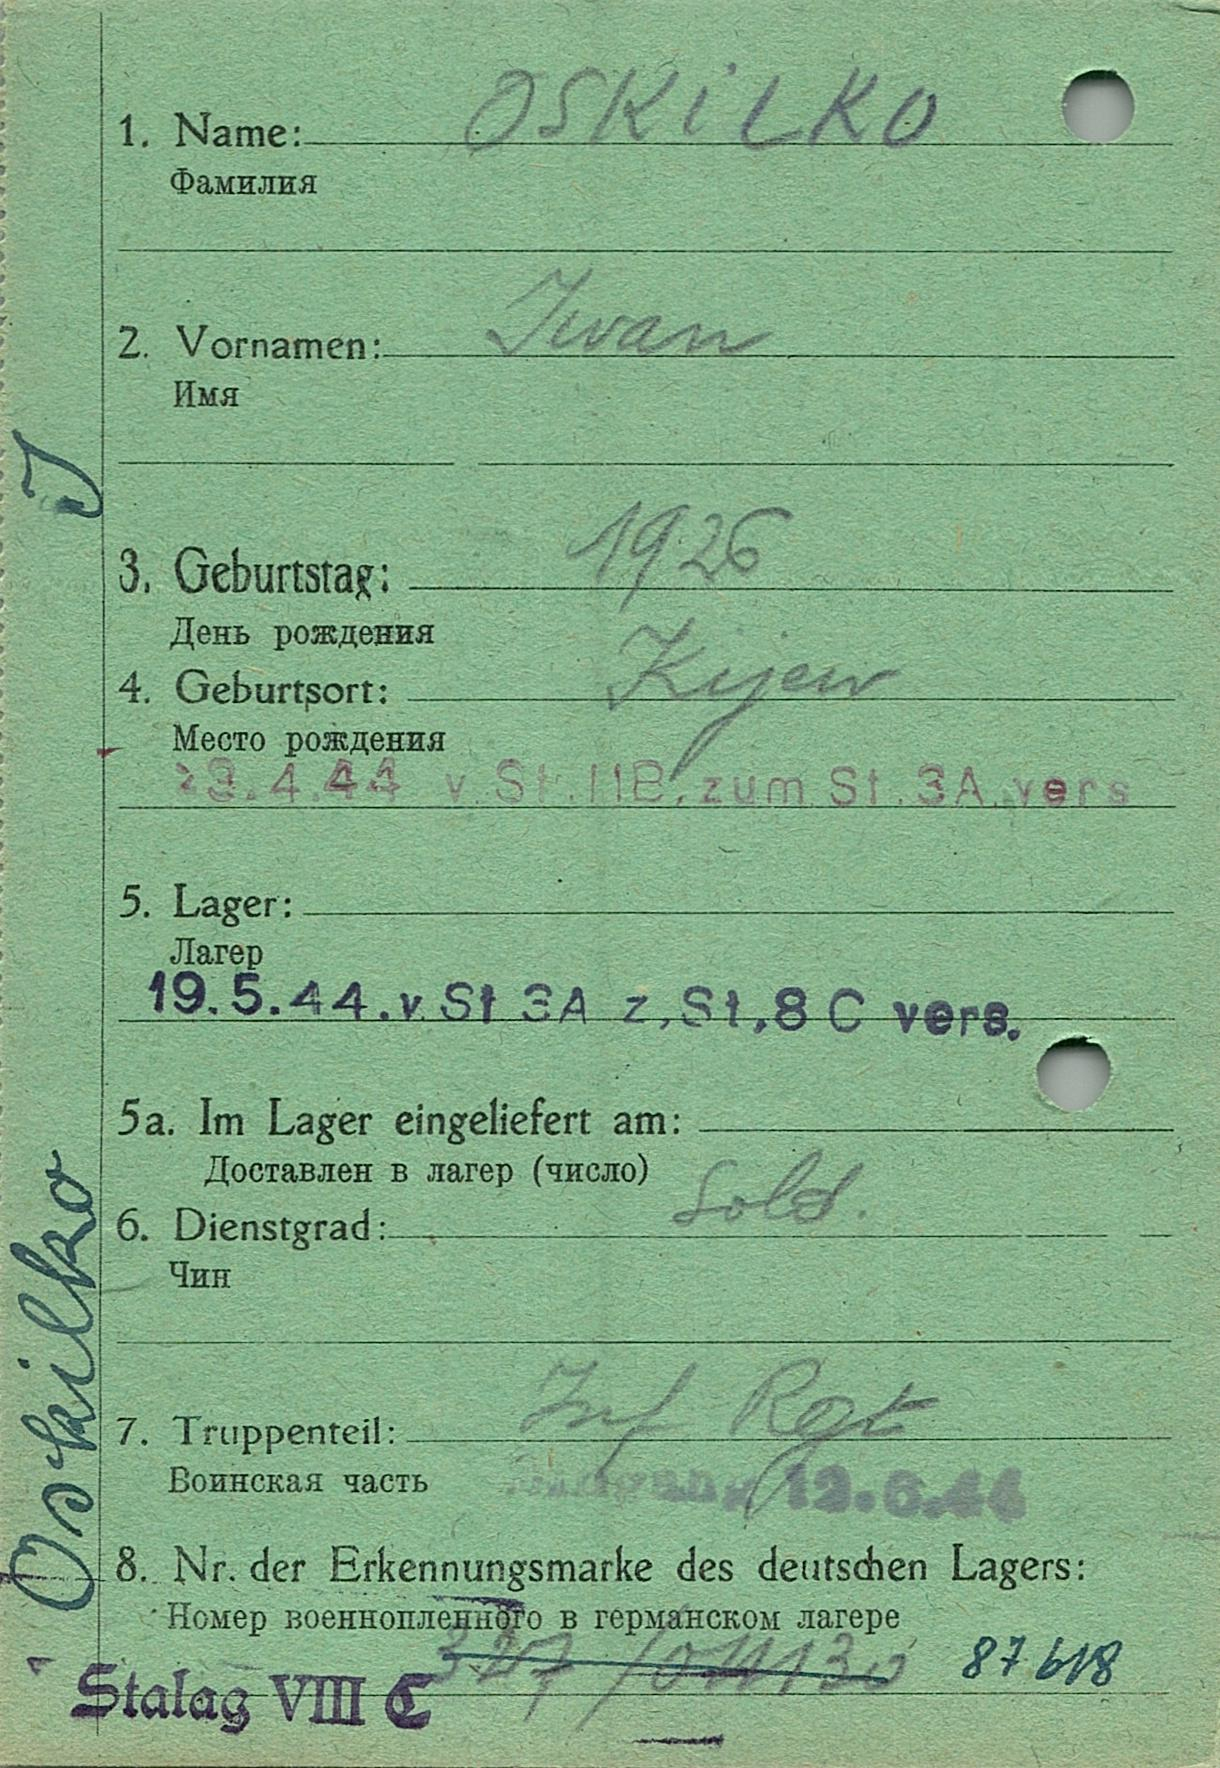 1. Name: OSKiLKO
Фамилия
2. Vornamen: Iwan
Имя
3. Geburtstag: 1926
День рождения
4. Geburtsort: Kijew
Место рождения
23.4.44 v. St. IIB. zum St. 3A. vers
5. Lager:
Лагер
19.5.44. v St 3A z, St, 8 C vers.
5a. Im Lager eingeliefert am:
Доставлен в лагер (число)
6. Dienstgrad: Sold.
Чин
7. Truppenteil: Inf Rgt
Воинская часть
12.6.44
8. Nr. der Erkennungsmarke des deutschen Lagers:
Номер военнопленного в германском лагере
327 87 618
Stalag VIII C
Oskilko J